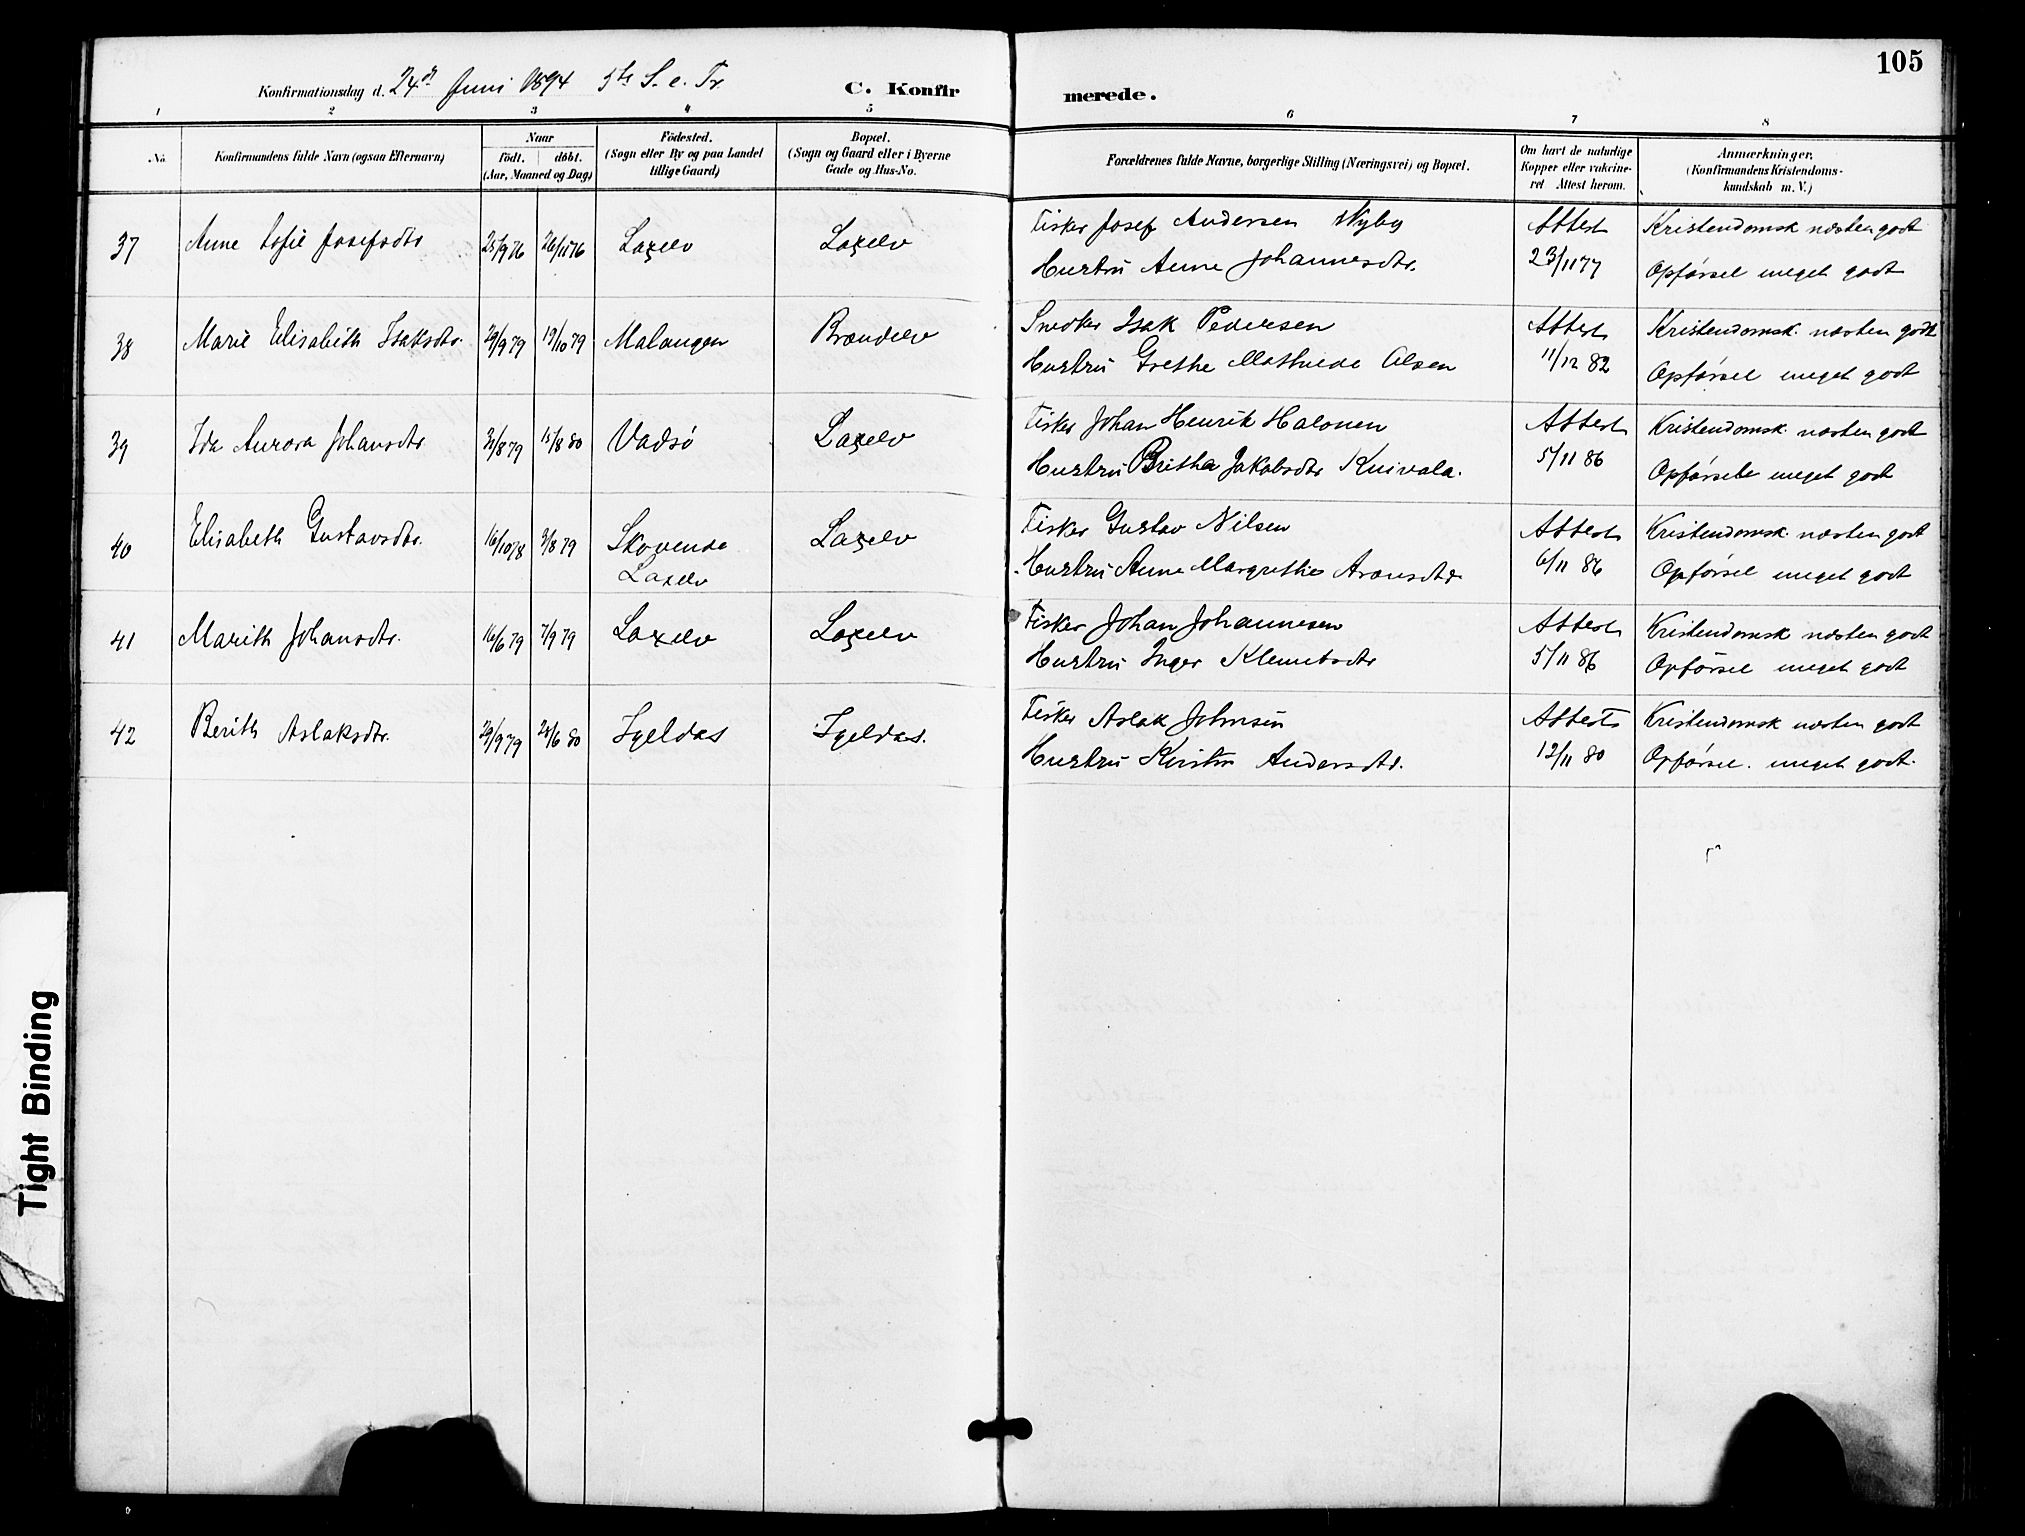 105
Konfirmationsdag d. 24de Juni 1894 5te S. e. Tr.
C. Konfirmerede.
1 2 3 4 5 6 7 8
No.
Konfirmandens fulde Navn (ogsaa Efternavn)
Naar
født. døbt.
(Aar, Maaned og Dag)
Fødested.
(Sogn eller By og paa Landet
tillige Gaard)
Bopæl.
(Sogn og Gaard eller i Byerne
Gade og Hus-No.
Forældrenes fulde Navne, borgerlige Stilling (Næringsvei) og Bopæl.
Om havt de naturlige
Kopper eller vakcine-
ret Attest herom.
Anmærkninger.
(Konfirmandens Kristendoms-
kundskab m. V.)
37 Anne Sofie Josefsdtr 25/9 76 26/11 76 Laxelv Laxelv Fisker Josef Andersen Nyby Attest Kristendomsk næsten godt
Hustru Anne Johannesdtr. 23/11 77 Opførsel meget godt
38 Marie Elisabeth Isaksdtr. 29/9 79 19/10 79 Malangen Brændelv Snedker Isak Pedersen Attest Kristendomsk. næsten godt
Hustru Grethe Mathilde Olsen 11/12 82 Opførsel meget godt
39 Ida Aurora Johansdtr 31/8 79 15/8 80 Vadsø Laxelv Fisker Johan Henrik Halonen Attest Kristendomsk. næsten godt
Hustru Britha Jakobsdtr Knivala. 5/11 86 Opførsel meget godt
40 Elisabeth Gustavsdtr. 16/10 78 3/8 79 Skovende Laxelv Fisker Gustav Nilsen Attest Kristendomsk. næsten godt
Laxelv Hustru Anne Margrethe Aronsdtr 6/11 86 Opførsel meget godt
41 Marith Johansdtr. 16/6 79 7/9 79 Laxelv Laxelv Fisker Johan Johannesen Attest Kristendomsk næsten godt
Hustru Inger Klemetsdtr 5/11 86 Opførsel meget godt
42 Berith Aslaksdtr. 29/9 79 28/6 80 Igeldas Igeldas. Fisker Aslak Johnsen Attest Kristendomsk næsten godt
Hustru Kirsten Andersdtr. 12/11 80 Opførsel. meget godt.
Tight Binding